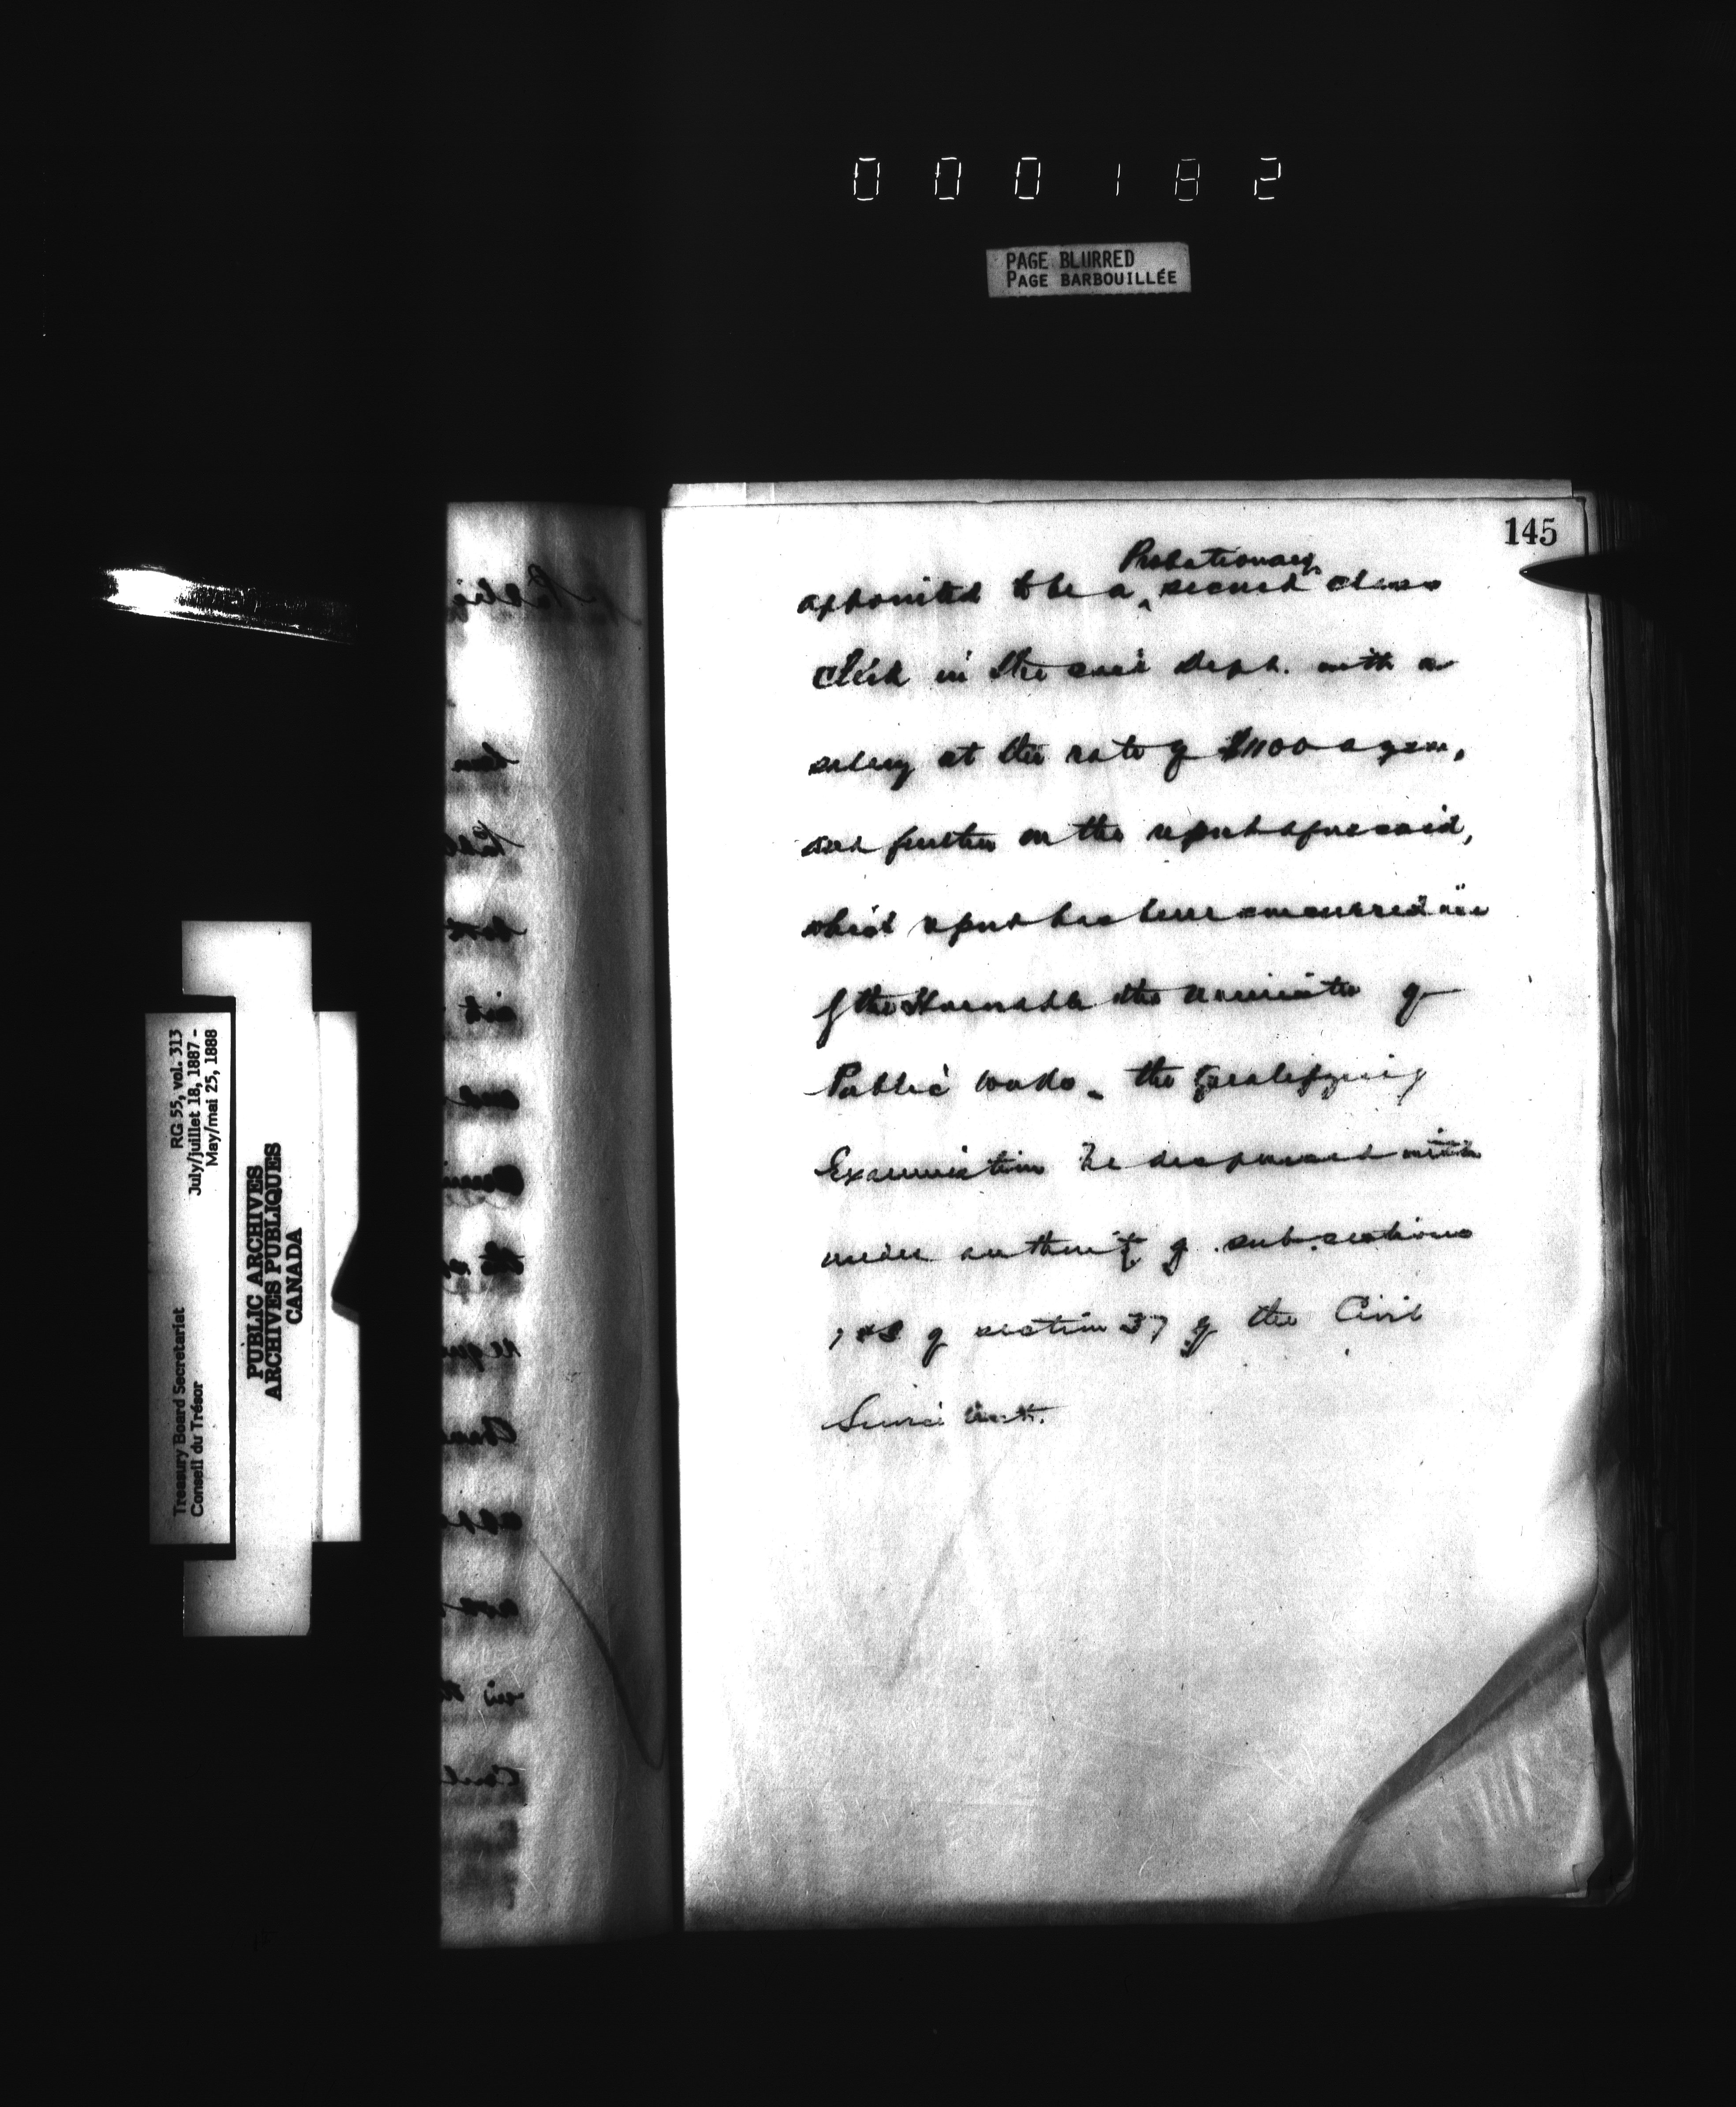 000182
PAGE BLURRED
PAGE BARBOUILLÉE
145
Probationary
appointed to be a ‸ second class
Clerk in the said Dept. with a
salary at the rate of $1100 a year,
and further on the report aforesaid,
which report has been concurred in
of the Honorable the Minister of
Public Works – the qualifying
Examination be dispensed with
under authority of sub-sections
of section 37 of the Civil
Service Act.
RG 55, vol. 313
July/juillet 18, 1887 -
May/mai 25, 1888
Treasury Board Secretariat
Conseil du Trésor
PUBLIC ARCHIVES
ARCHIVES PUBLIQUES
CANADA